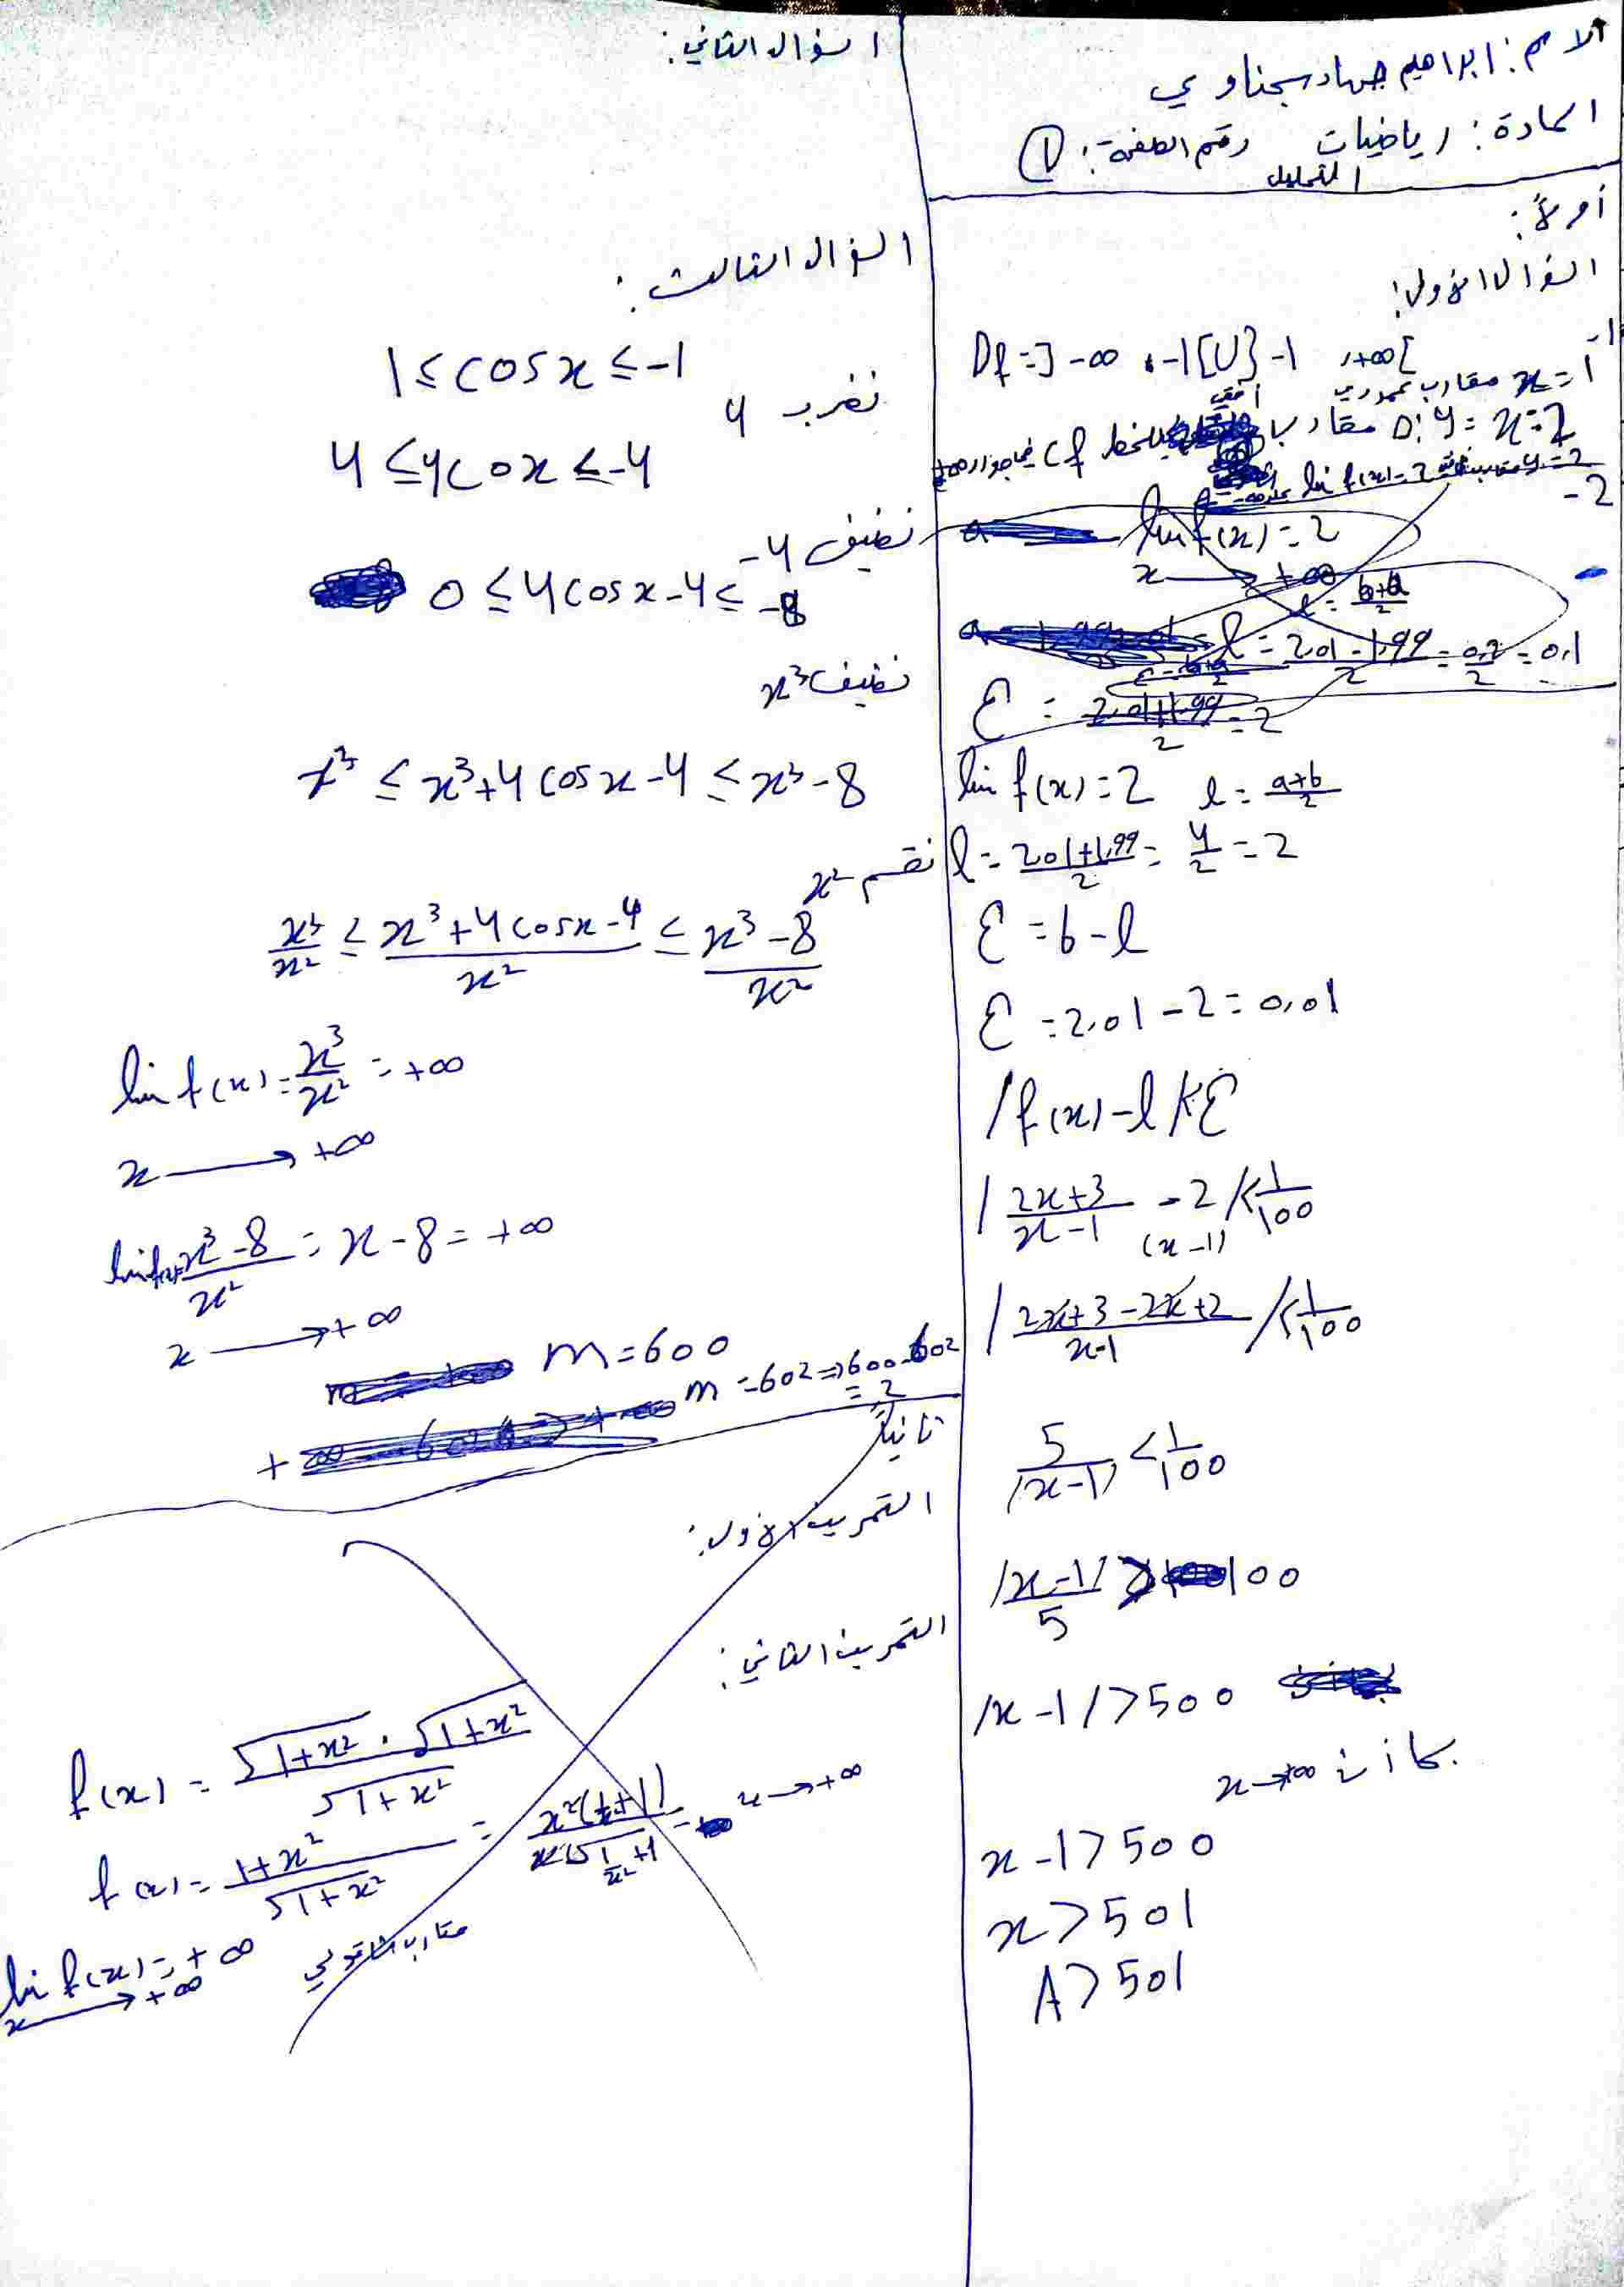 الاسم: ابراهيم جهاد سجناوي
المادة: رياضيات رقم الصفحة: 1
التحليل
أولاً:
السؤال الاول:
1-
Df = ]-∞ , -1[ U } -1 , +∞[
x = 1 مقارب عمودي
D: y = x = 2 مقارب أفقي للخط Cf في جوار +∞
2-
lim f(x) = 2
x → +∞
l = (b+a)/2
l = (2.01 - 1.99)/2 = 0.2/2 = 0.1
ε = (2.01+1.99)/2 = 2
lim f(x) = 2 l = (a+b)/2
l = (2.01+1.99)/2 = 4/2 = 2
ε = b - l
ε = 2.01 - 2 = 0.01
/f(x) - l/ < ε
/ (2x+3)/(x-1) - 2 / < 1/100
(x-1)
/ (2x+3-2x+2)/(x-1) / < 1/100
5 / /x-1/ < 1/100
/x-1/ / 5 > 100
/x-1/ > 500
x → +∞
x - 1 > 500
x > 501
A > 501
السؤال الثاني:
السؤال الثالث:
1 ≤ cos x ≤ -1
نضرب 4
4 ≤ 4cox ≤ -4
نضيف -4
0 ≤ 4cosx - 4 ≤ -8
نضيف x³
x³ ≤ x³ + 4cosx - 4 ≤ x³ - 8
نقسم x²
x³/x² ≤ (x³ + 4cosx - 4)/x² ≤ (x³ - 8)/x²
lim f(x) = x³/x² = +∞
x → +∞
lim f(x) = (x³ - 8)/x² = x - 8 = +∞
x → +∞
m = 600
m = 602 ⇒ 600 - 602
= 2
ثانياً
التمرين الاول:
التمرين الثاني:
f(x) = √(1+x²) · √(1+x²) / √(1+x²)
f(x) = (1+x²)/√(1+x²) = x²(1/x + 1) / x√(1/x² + 1) = x → +∞
lim f(x) = +∞
x → +∞
مقارب شاقولي